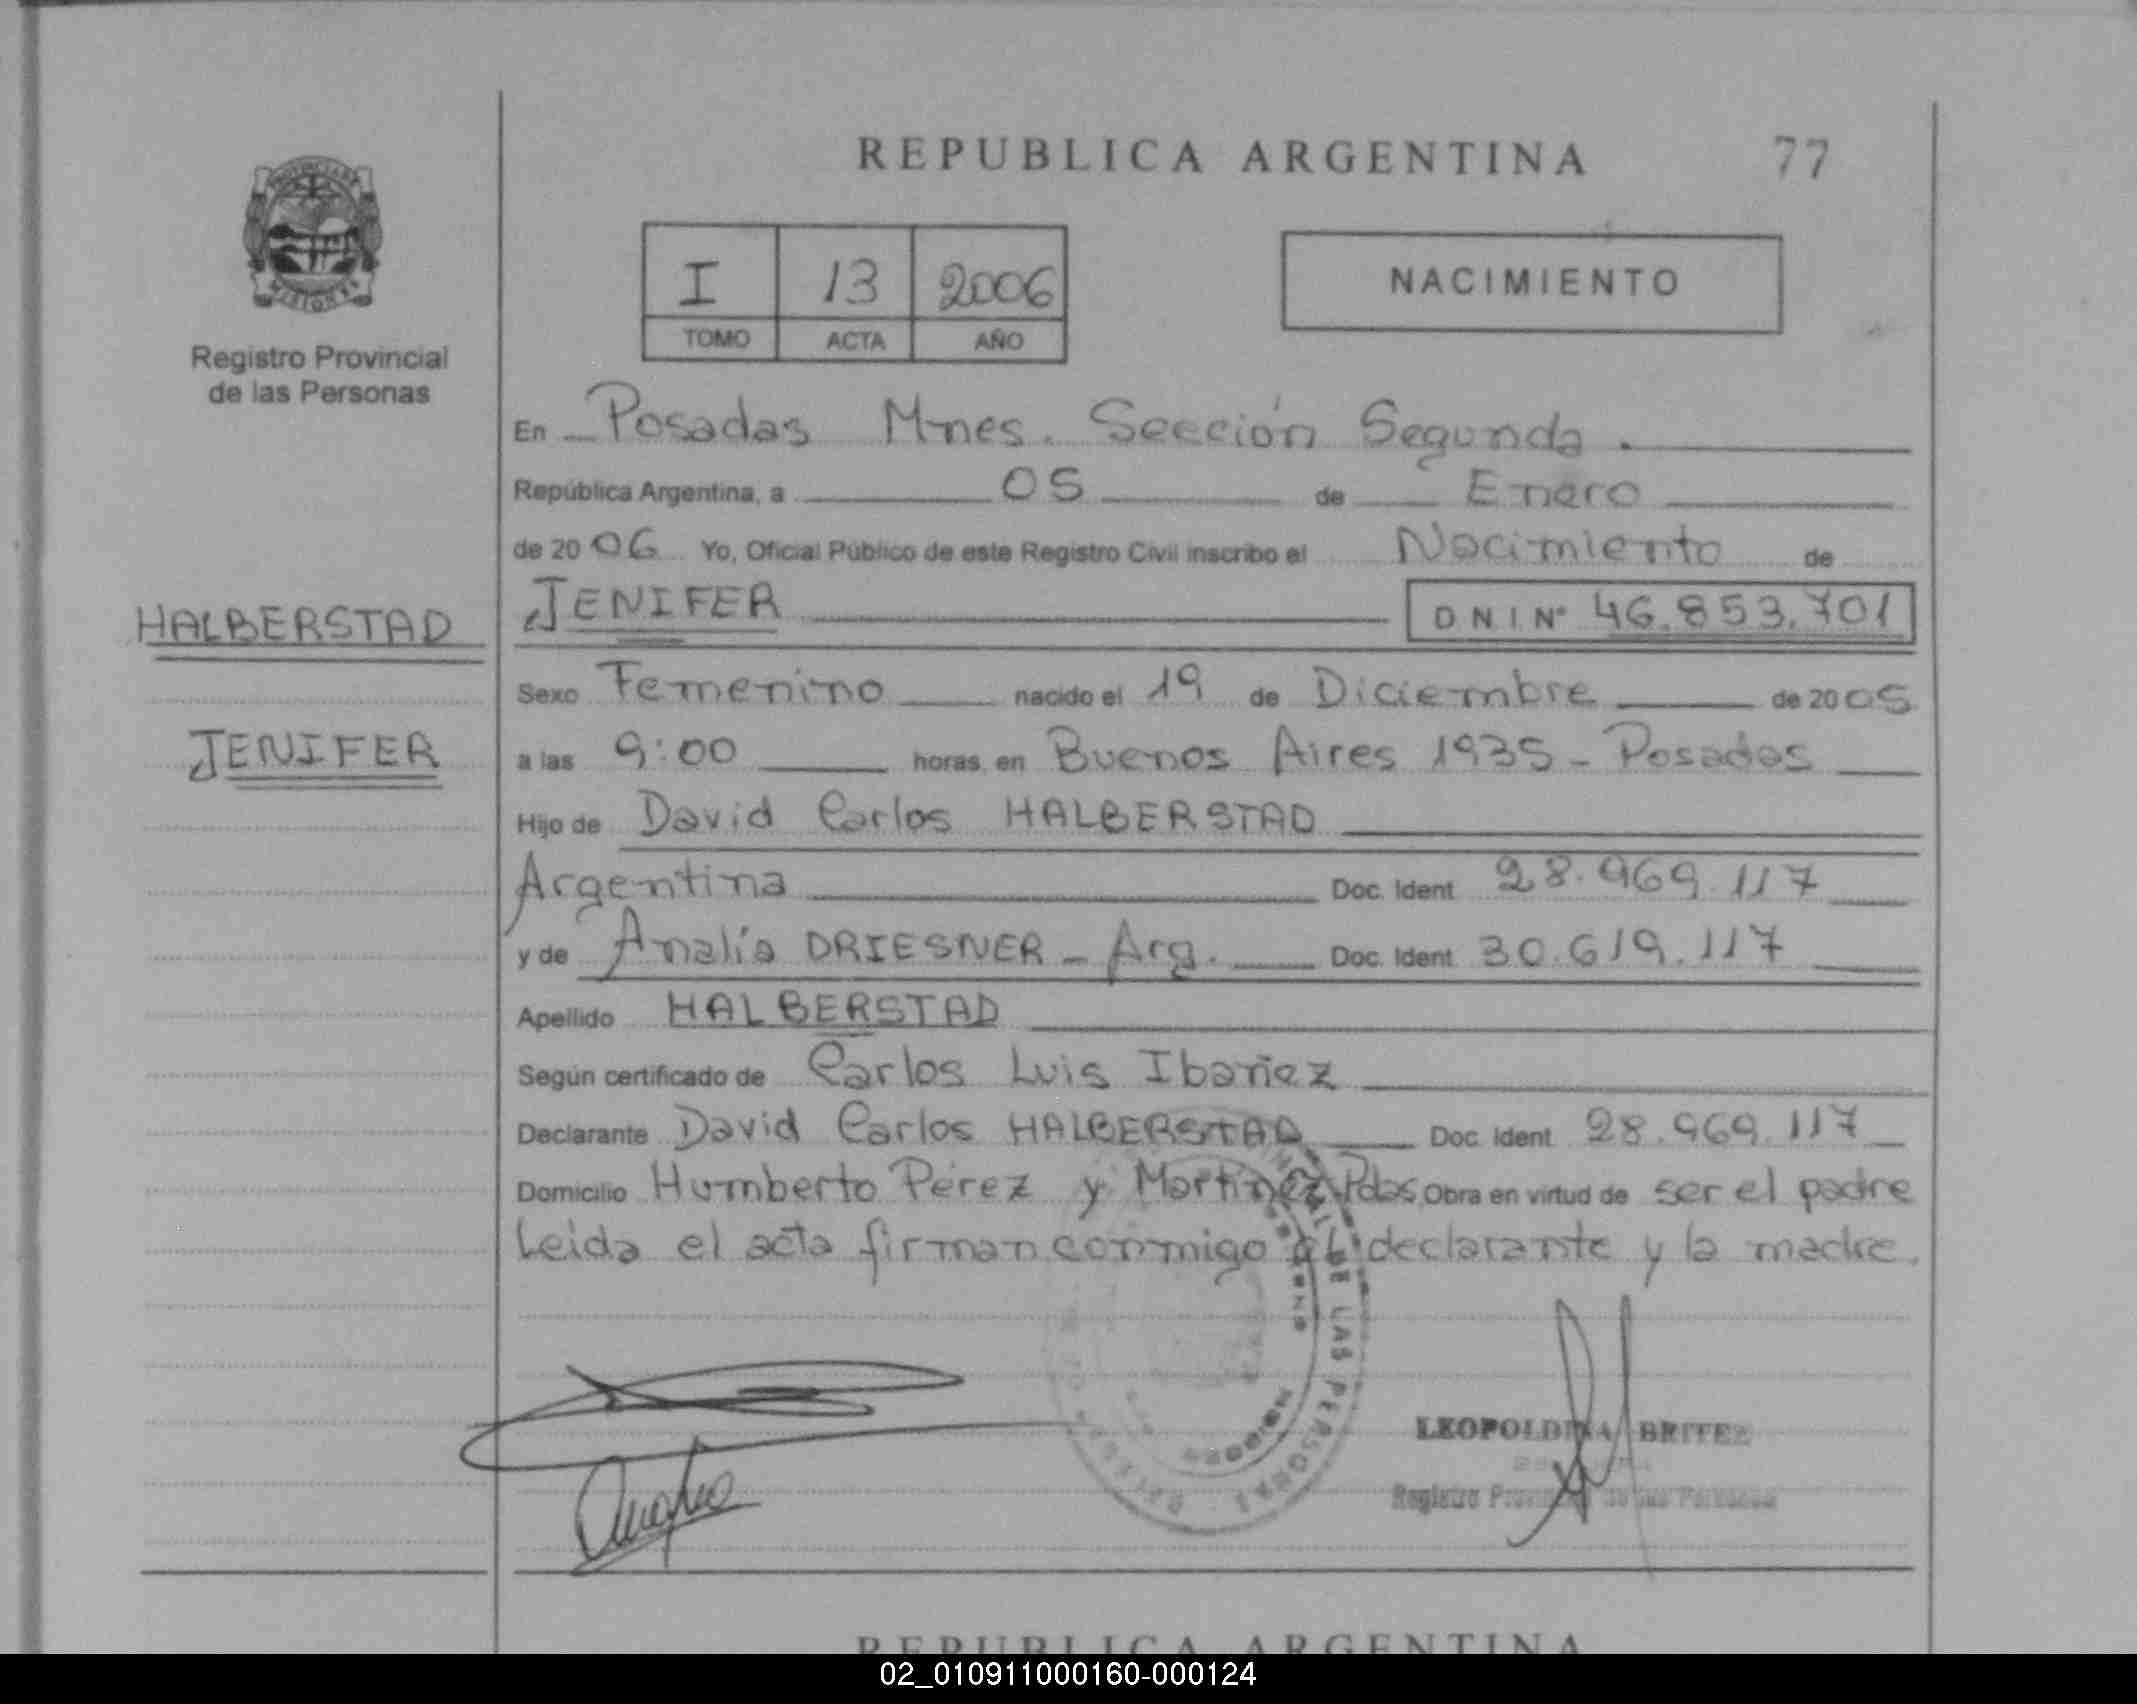 REPUBLICA ARGENTINA 77
I 13 2006
TOMO ACTA AÑO
NACIMIENTO
Registro Provincial
de las Personas
En Posadas Mnes. Sección Segunda.
República Argentina, a 05 de Enero
de 2006 Yo, Oficial Público de este Registro Civil inscribo el Nacimiento de
HALBERSTAD
JENIFER
JENIFER DNI. Nº 46.853.701
Sexo Femenino nacido el 19 de Diciembre de 2005
a las 9:00 horas, en Buenos Aires 1935 - Posadas
Hijo de David Carlos HALBERSTAD
Argentina Doc. Ident. 28.969.117
y de Analía DRIESNER - Arg. Doc. Ident. 30.619.117
Apellido HALBERSTAD
Según certificado de Carlos Luis Ibañez
Declarante David Carlos HALBERSTAD Doc. Ident. 28.969.117
Domicilio Humberto Pérez y Martínez Pdas. Obra en virtud de ser el padre
Leida el acta firman conmigo el declarante y la madre.
DE LAS PERSONAS
LEOPOLDINA BRITEZ
Registro Provincial de las Personas
REPUBLICA ARGENTINA
02_010911000160-000124